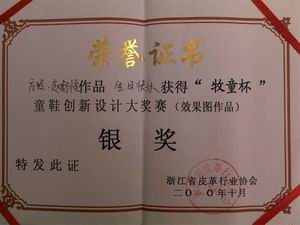 荣誉证书
作品 生日快乐 获得“牧童杯”
童鞋创新设计大奖赛（效果图作品）
银奖
特发此证
浙江省皮革行业协会
二〇一〇年十月